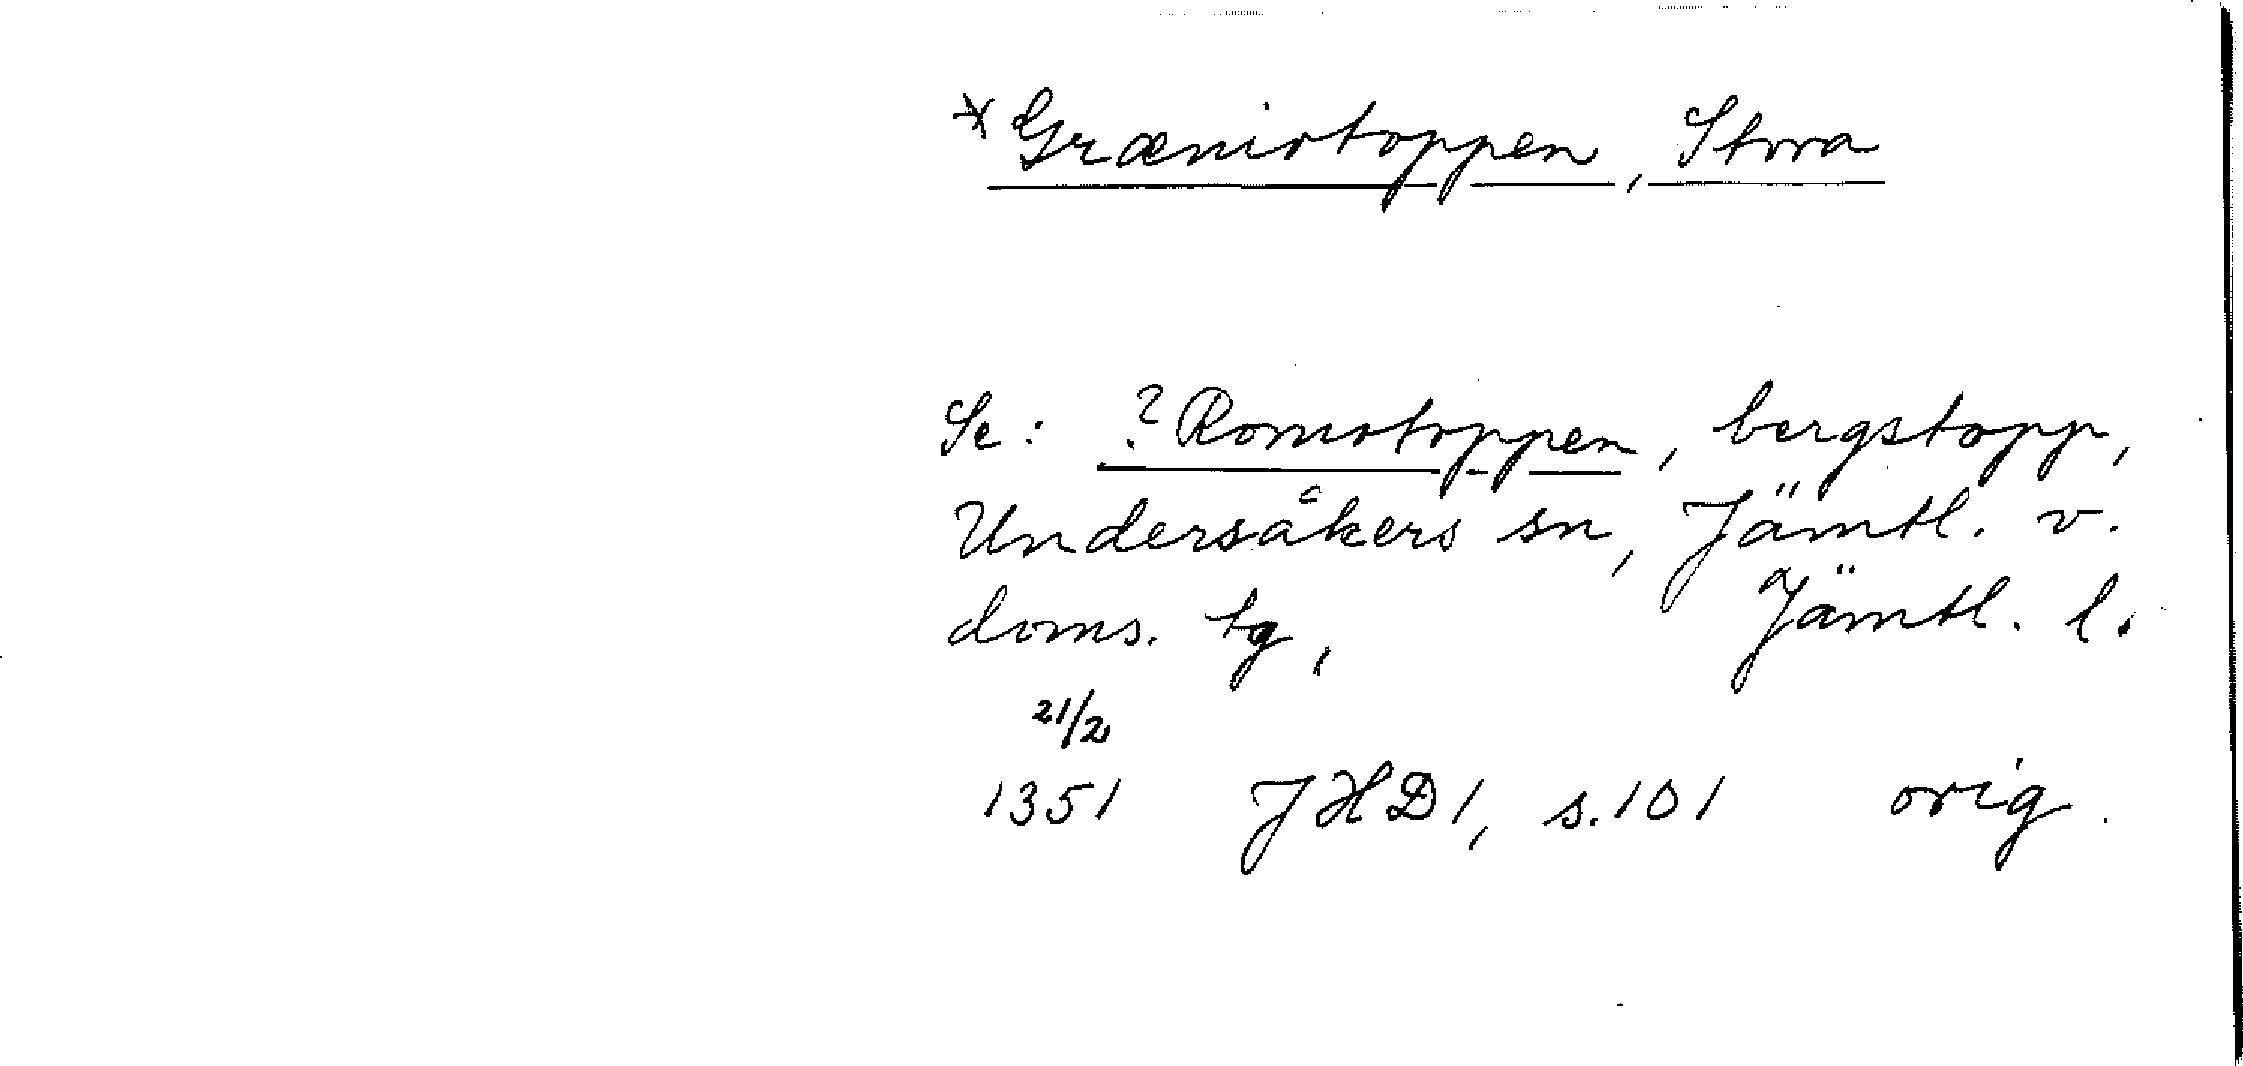 *Grænistoppen, Stora
Se: ?Romstoppen, bergstopp,
Undersåkers sn, Jämtl. v.
doms. tg, Jämtl. l.
21/2
1351 JHD1, s.101 orig.